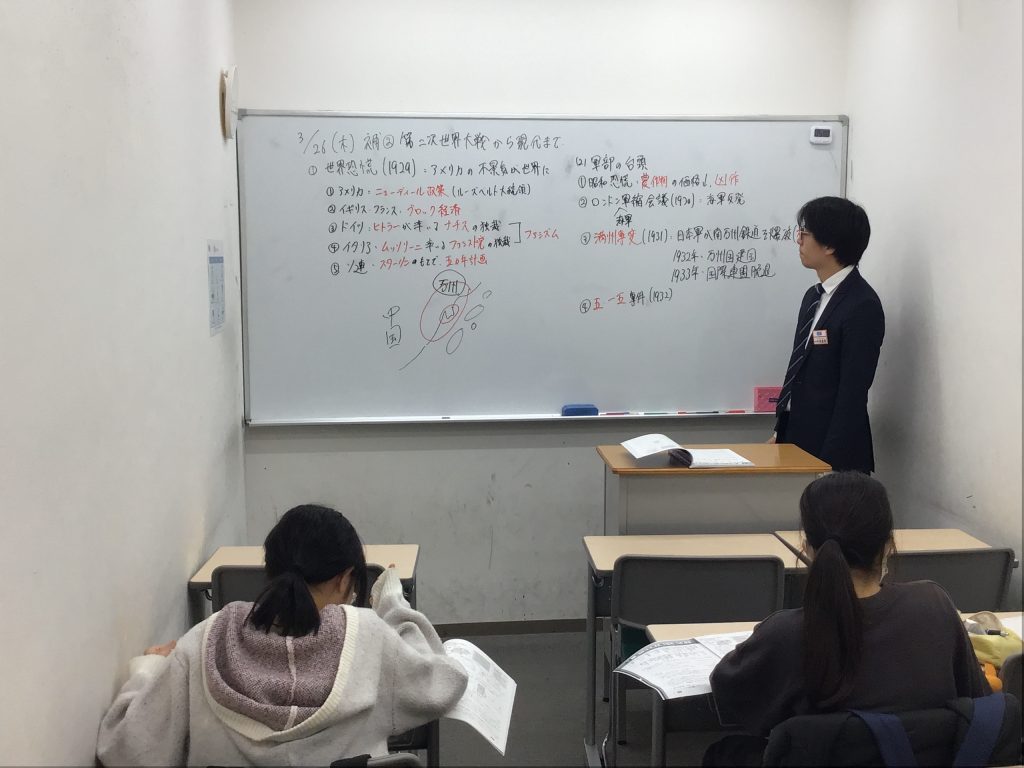 3/26(木) 補② 第二次世界大戦から現代まで
① 世界恐慌(1929):アメリカの不景気が世界に
① アメリカ・ニューディール政策(ルーズベルト大統領)
② イギリス・フランス・ブロック経済
③ ドイツ・ヒトラーが率いるナチスの独裁
④ イタリア・ムッソリーニ率いるファシスト党の独裁
ファシズム
⑤ ソ連・スターリンのもとで、五カ年計画
万州
中国
(2) 軍部の台頭
① 昭和恐慌・農作物の価格↓、凶作
② ロンドン軍縮会議(1930):海軍反発
海軍
③ 満州事変(1931):日本軍が南万州鉄道を爆破
1932年・万州国建国
1933年・国際連盟脱退
④ 五・一五事件(1932)